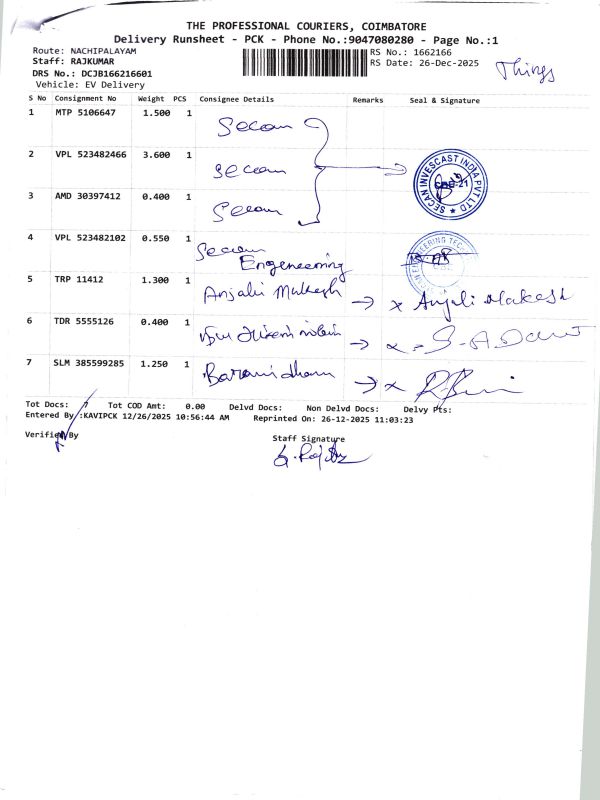 THE PROFESSIONAL COURIERS, COIMBATORE
Delivery Runsheet - PCK - Phone No.:9047080280 - Page No.:1
Route: NACHIPALAYAM
Staff: RAJKUMAR
DRS No.: DCJB166216601
Vehicle: EV Delivery
RS No.: 1662166
RS Date: 26-Dec-2025
Things
S No Consignment No Weight PCS Consignee Details Remarks Seal & Signature
1 MTP 5106647 1.500 1 Secan
2 VPL 523482466 3.600 1 Secan
SECAN INVESCAST INDIA PVT LTD
3 AMD 30397412 0.400 1 Secan
4 VPL 523482102 0.550 1 Secan
Engeneering
5 TRP 11412 1.300 1 Anjali Mukesh → x Anjali Mukesh
6 TDR 5555126 0.400 1
7 SLM 385599285 1.250 1 Baranidharan → x
Tot Docs: 7 Tot COD Amt: 0.00 Delvd Docs: Non Delvd Docs: Delvy Pts:
Entered By :KAVIPCK 12/26/2025 10:56:44 AM Reprinted On: 26-12-2025 11:03:23
Verified By
Staff Signature